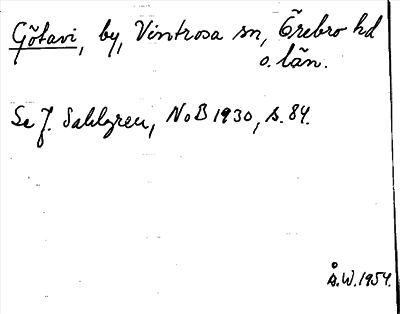 Götavi, by, Vintrosa sn, Örebro hd
o. län.
Se J. Sahlgren, NoB 1930, s. 84.
Å.W. 1954.